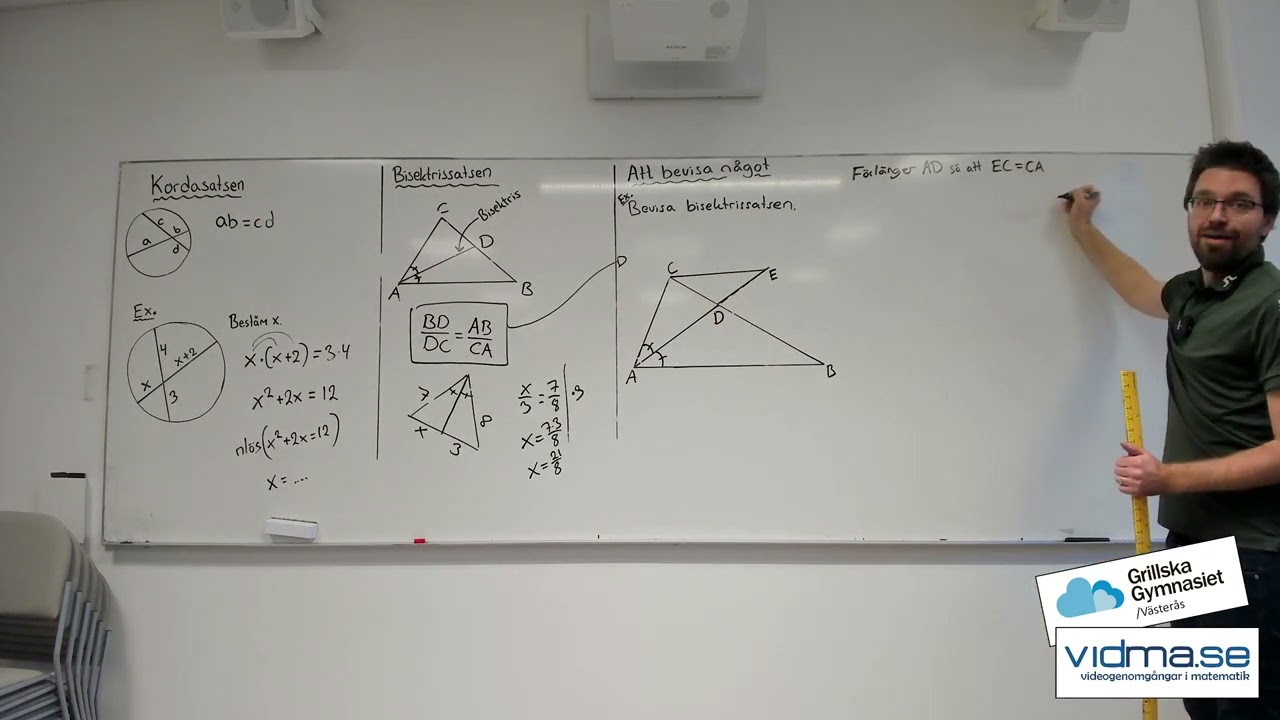 Kordasatsen
c
a
b
d
ab=cd
Ex.
Bestäm x.
4
x+2
x
3
x·(x+2)=3·4
x²+2x=12
nlös(x²+2x=12)
x=....
Bisektrissatsen
Bisektris
C
D
A
B
BD/DC=AB/CA
7
x x
8
x
3
x/3=7/8 |·3
x=7·3/8
x=21/8
Att bevisa något
Ex.
Bevisa bisektrissatsen.
C
E
D
A
B
Förlänger AD så att EC=CA
Grillska
Gymnasiet
/Västerås
vidma.se
videogenomgångar i matematik